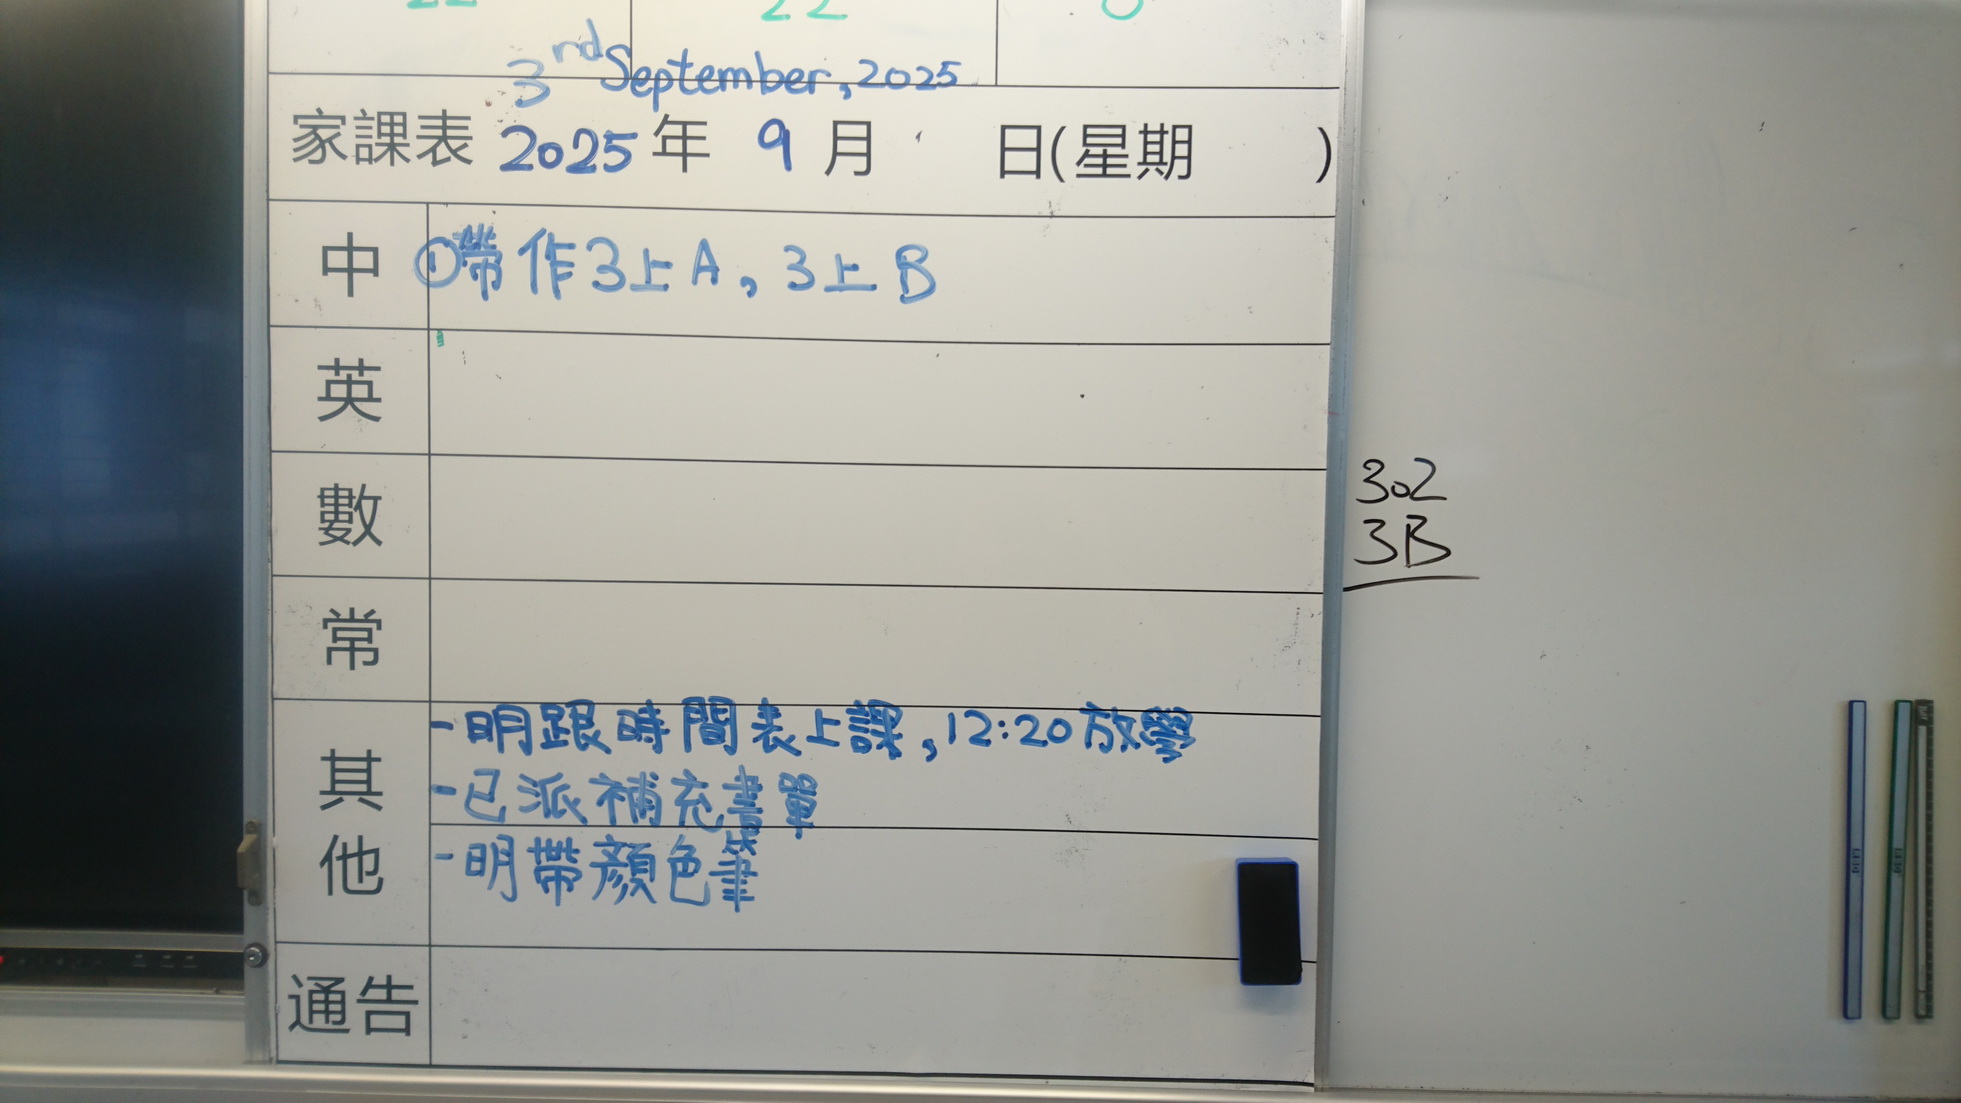 22 22 0
3rd September, 2025
家課表 2025 年 9 月 日(星期 )
中 ①帶作3上A, 3上B
英
數
常
其他
-明跟時間表上課, 12:20放學
-已派補充書單
-明帶顏色筆
通告
302
3B